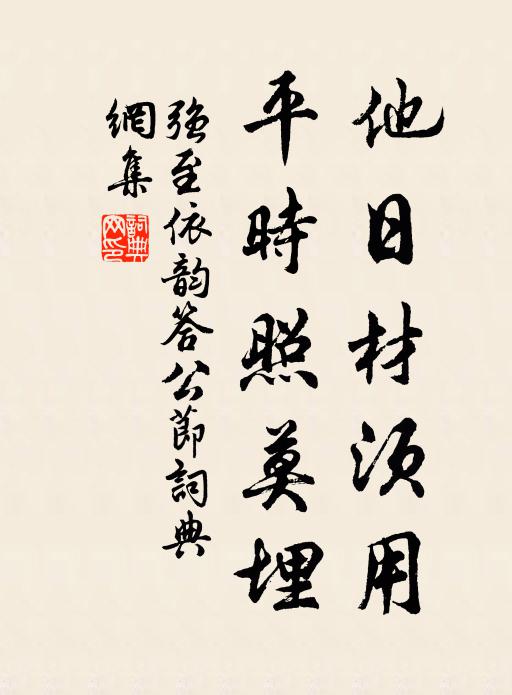 他日材须用
平時照莫埋
強至依韵答公節詞典
網集
詞典
网印